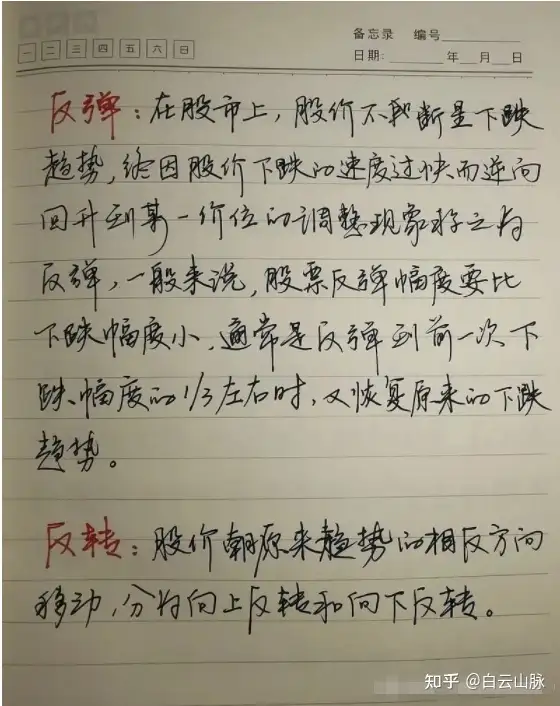 备忘录 编号
一 二 三 四 五 六 日
日期: 年 月 日
反弹：在股市上，股价不断呈下跌
趋势，终因股价下跌的速度过快而逆向
回升到某一价位的调整现象称之为
反弹，一般来说，股票反弹幅度要比
下跌幅度小，通常是反弹到前一次下
跌幅度的1/3左右时，又恢复原来的下跌
趋势。
反转：股价朝原来趋势的相反方向
移动，分为向上反转和向下反转。
知乎 @白云山脉